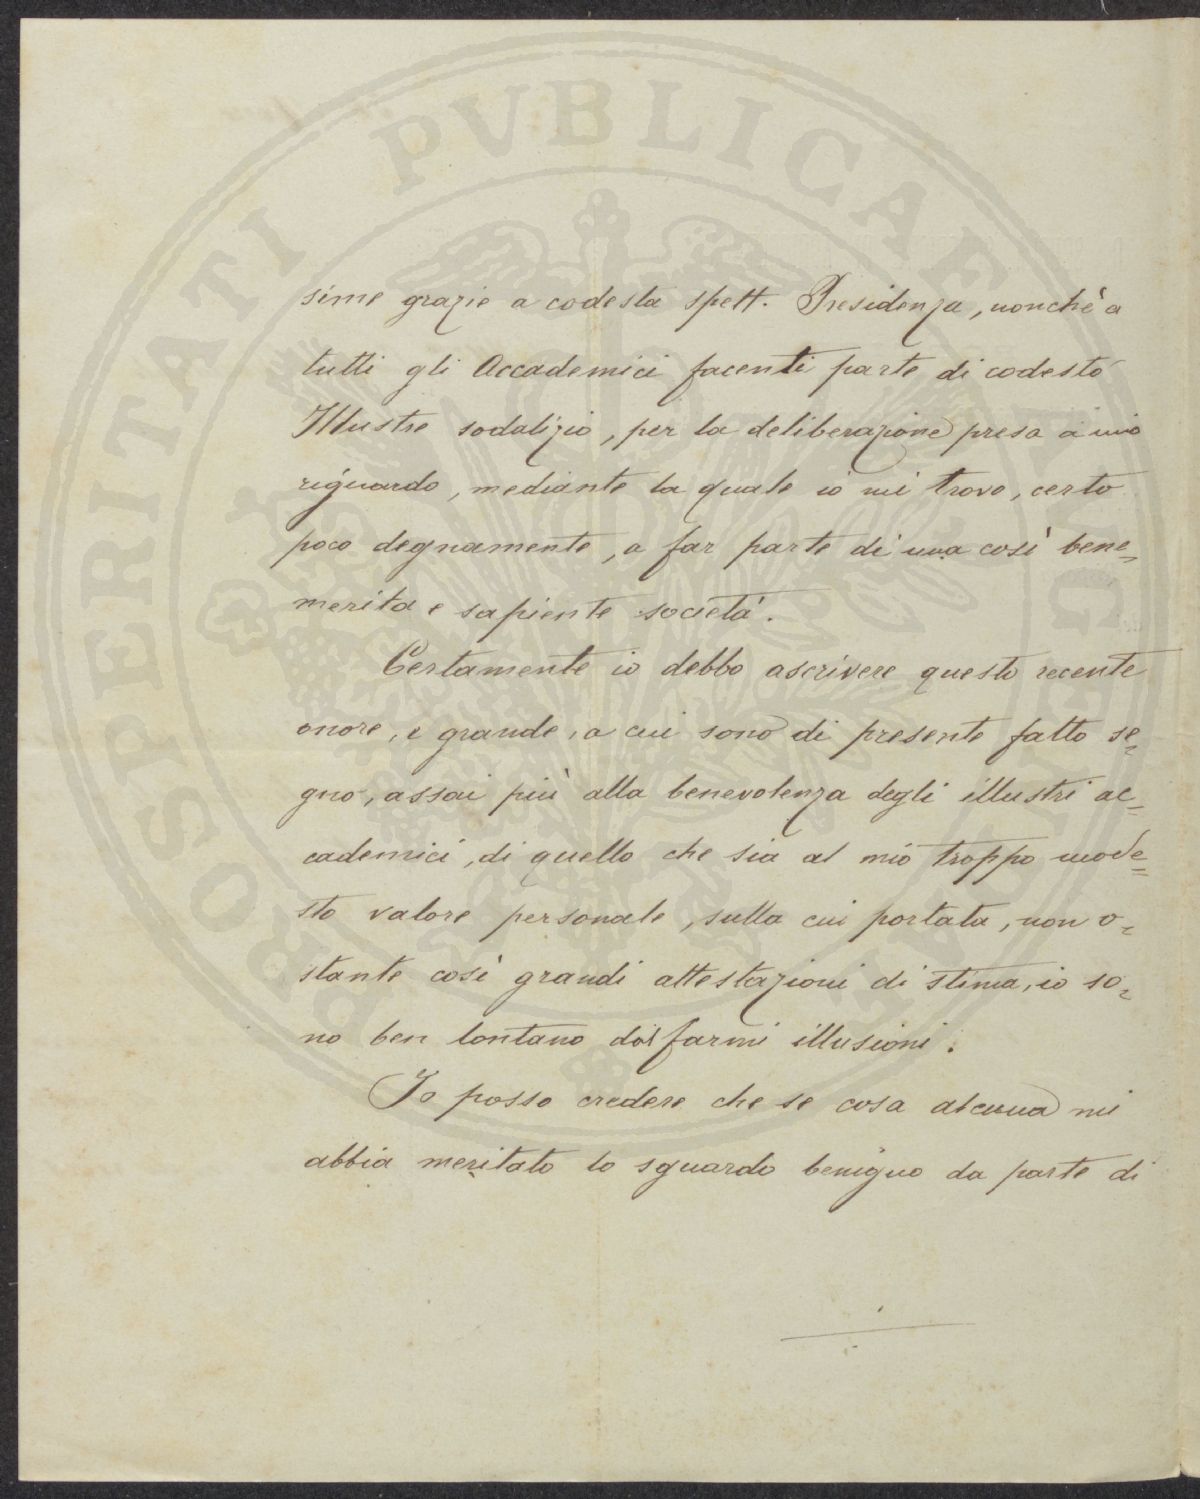 sime grazie a codesta spett. Presidenza, nonchè a
tutti gli Accademici facenti parte di codesto
Illustre sodalizio, per la deliberazione presa a mio
riguardo, mediante la quale io mi trovo, certo
poco degnamente, a far parte di una così bene=
merita e sapiente società.
Certamente io debbo ascrivere questo recente
onore, e grande, a cui sono di presente fatto se=
gno, assai più alla benevolenza degli illustri ac=
cademici, di quello che sia al mio troppo mode=
sto valore personale, sulla cui portata, non o=
stante così grandi attestazioni di stima, io so=
no ben lontano dal farmi illusioni.
Io posso credere che se cosa alcuna mi
abbia meritato lo sguardo benigno da parte di
PROSPERITATI PUBLICAE